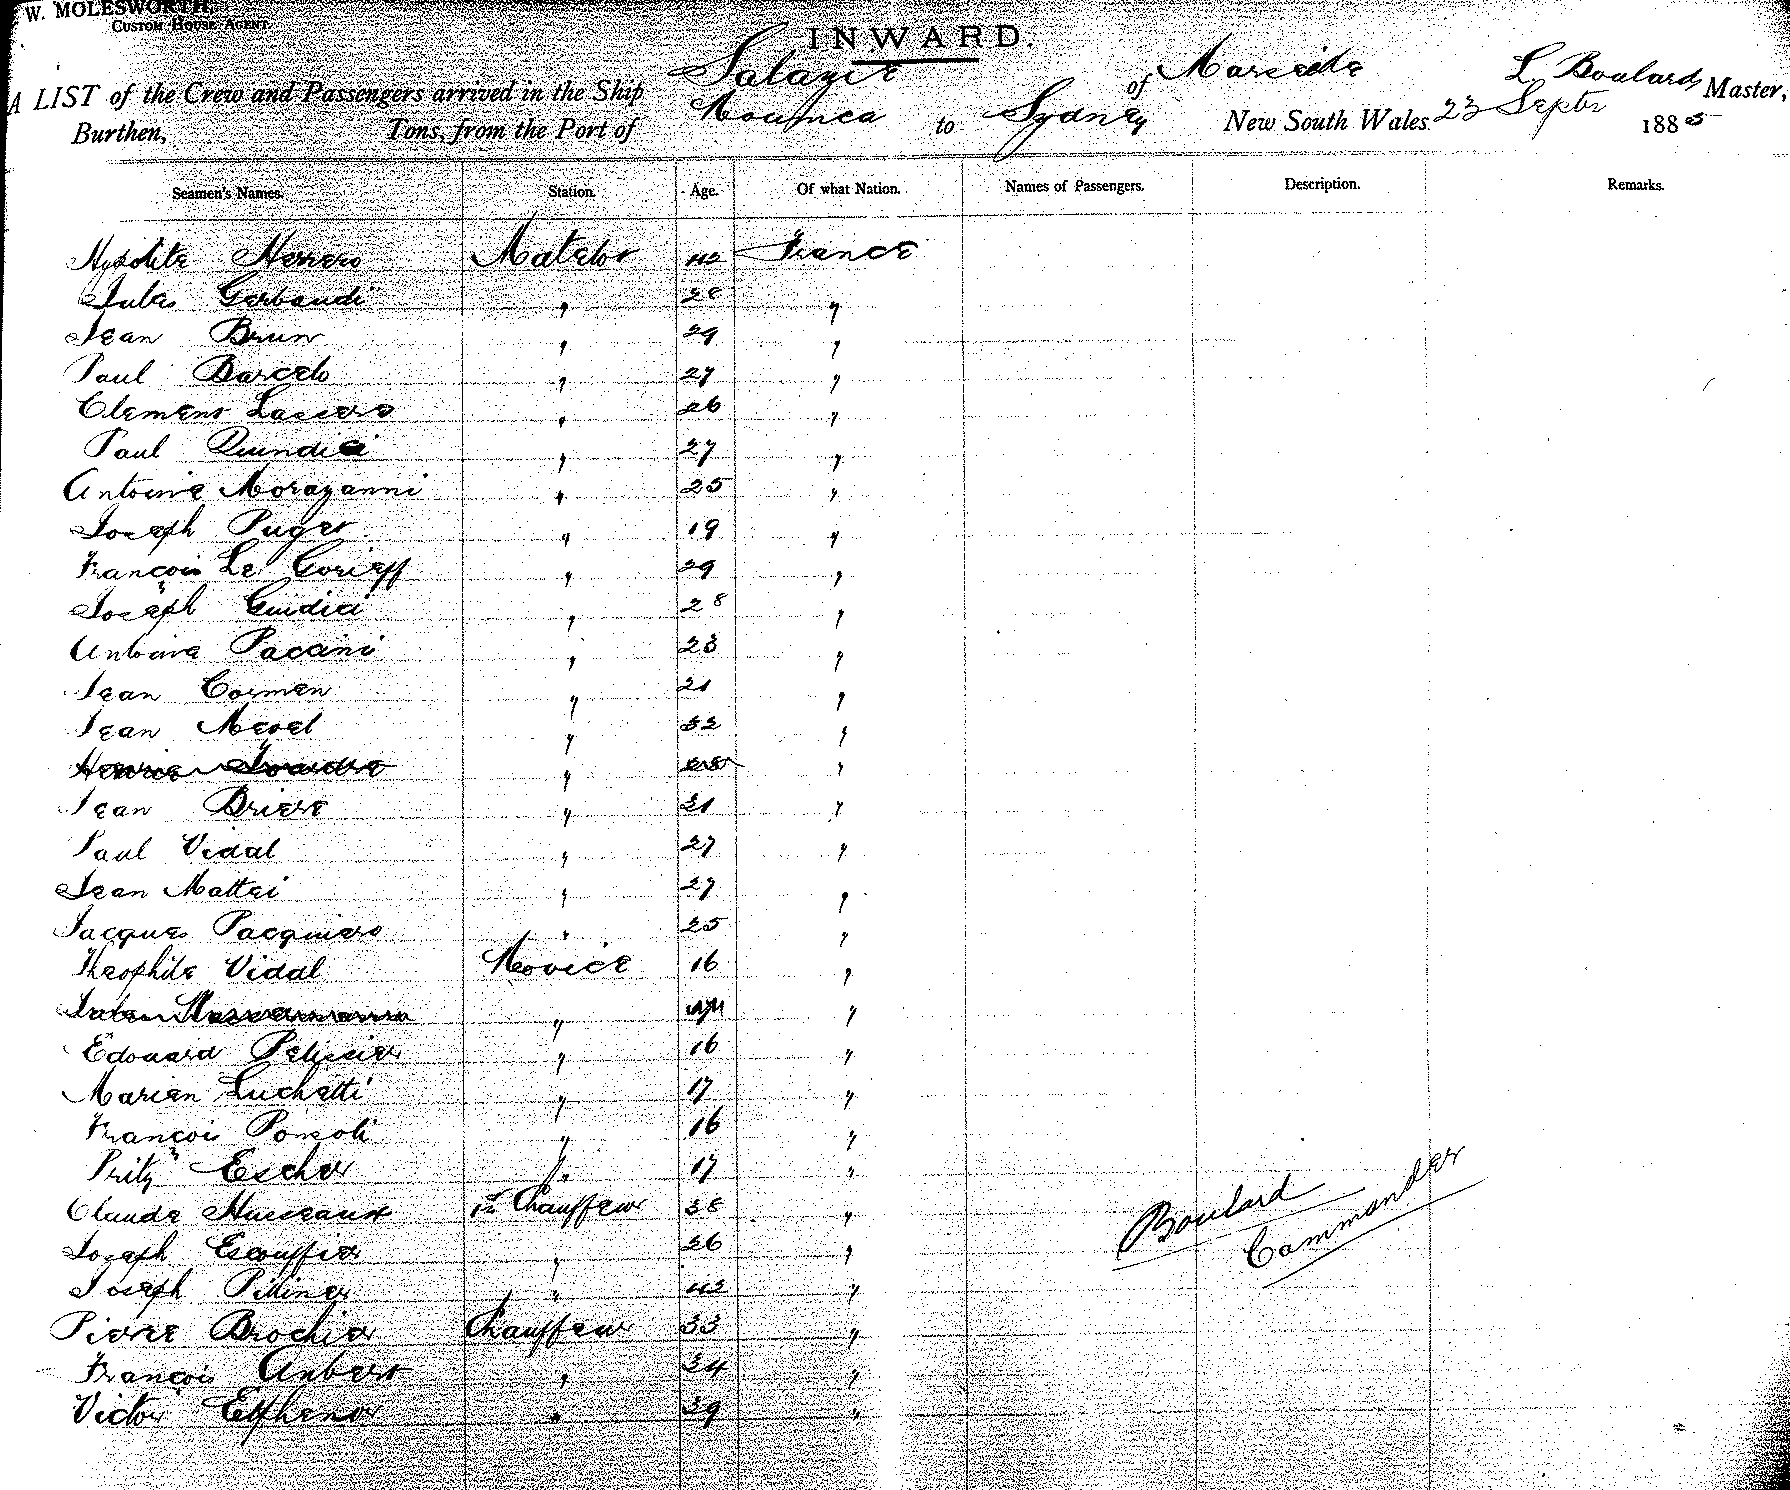 W. MOLESWORTH,
CUSTOM HOUSE AGENT
INWARD.
A LIST of the Crew and Passengers arrived in the Ship Salazie of Marseille L Boulard Master,
Burthen, Tons, from the Port of Noumea to Sydney New South Wales 23 Septr 1885
Seamen's Names. Station. Age. Of what Nation. Names of Passengers. Description. Remarks.
Matelot 42 France
Jules Garbaudi 28 " "
Jean Brun " 29 "
Paul Barcelo " 27 "
Clement " 26 "
Paul " 27 "
Antoine Morazanni " 25 "
Joseph Puget " 19 "
François Le " 29 "
Joseph Guidici " 28 "
Antoine Paccini " 23 "
Jean Cormen " 21 "
Jean Mevel " 32 "
" "
Jean Briere " 21 "
Paul Vidal " 27 "
Jean Mattei " 27 "
Jacques " 25 "
Theophile Vidal Novice 16 "
" "
Edouard Pelissier " 16 "
Marien Luchetti " 17 "
François Ponsoli " 16 "
Fritz Escher " 17 "
Claude Husseaux 1er Chauffeur 38 "
Joseph Escouffier " 26 "
Joseph " 42 "
Pierre Brochier Chauffeur 33 "
François Aubert " 34 "
Victor " 39 "
Boulard
Commander